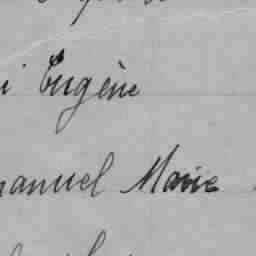 i Eugène
anuel Marie